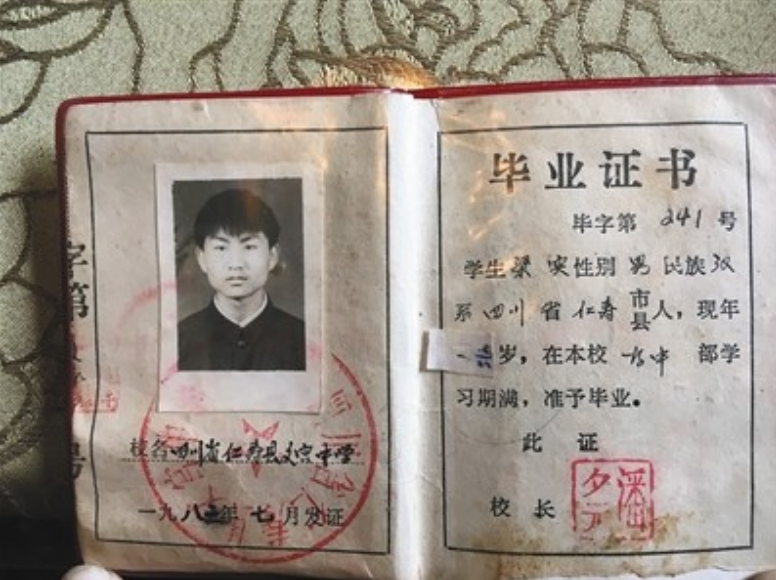 字第
号
校名 四川省仁寿县文宫中学
一九八三年七月发证
毕业证书
毕字第 241 号
学生梁 性别 男 民族汉
系四川省仁寿市县人，现年
岁，在本校 高中 部学
习期满，准予毕业。
此证
校长